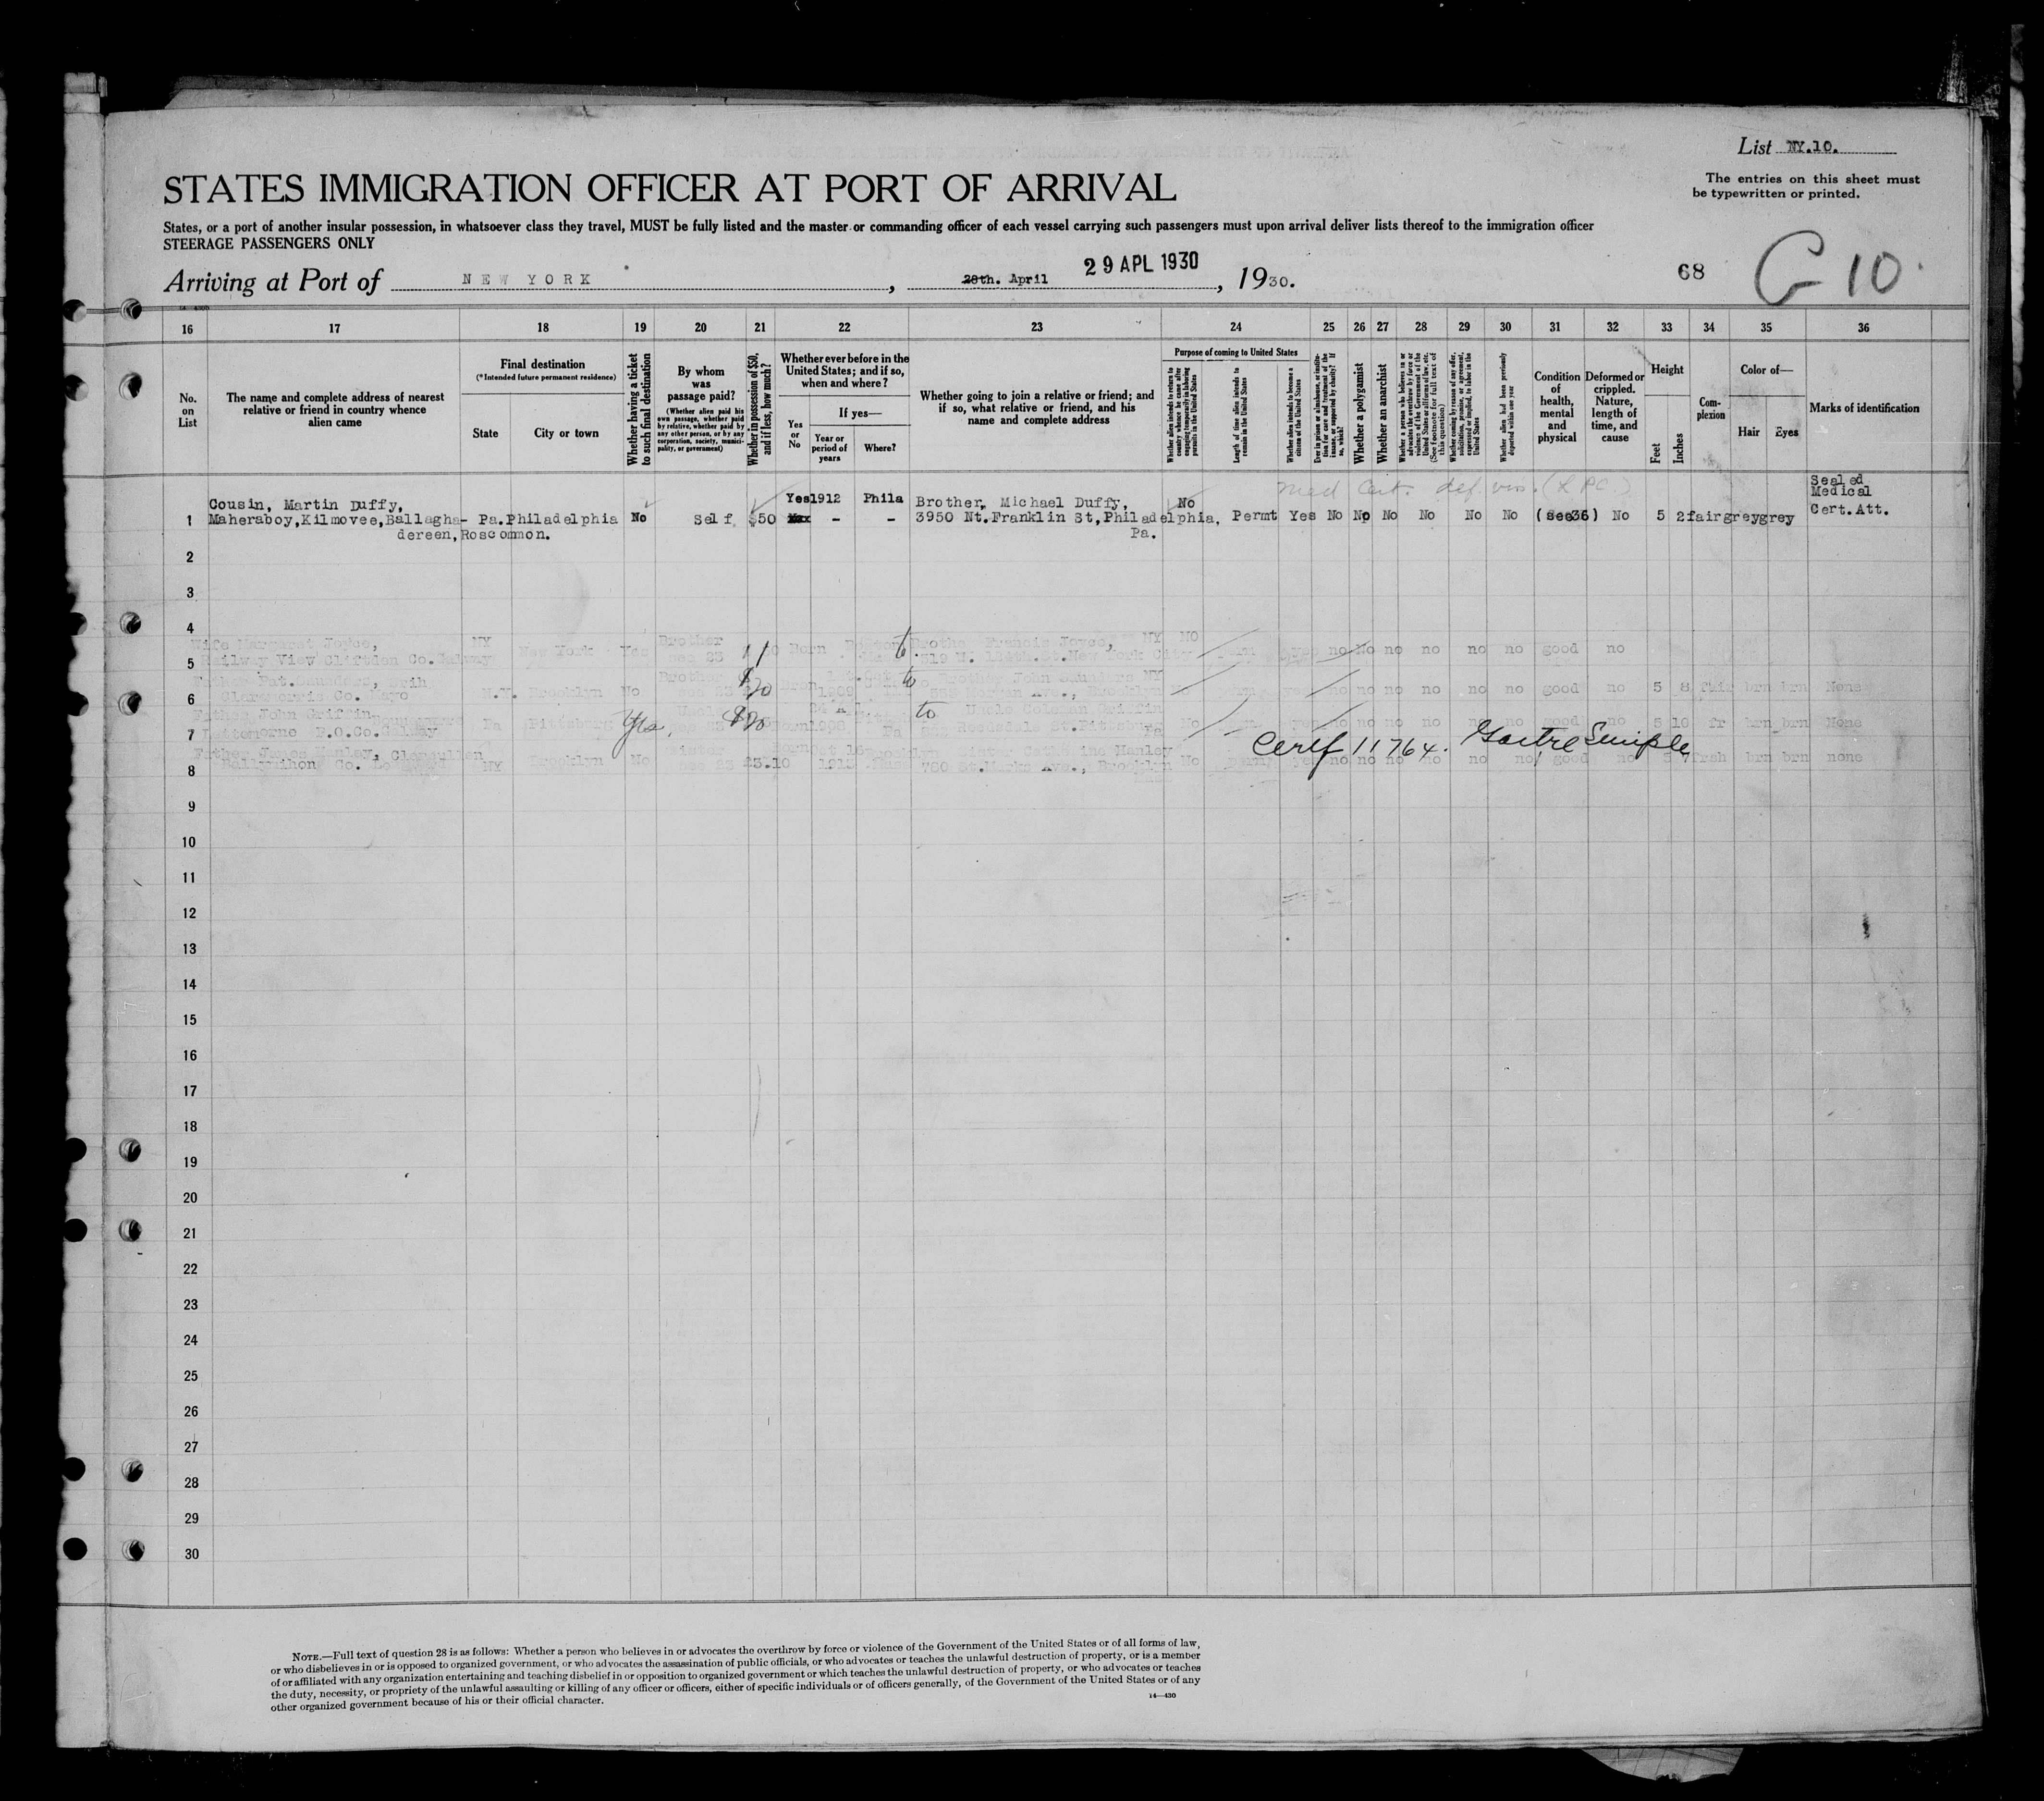 List NY.10.
The entries on this sheet must
be typewritten or printed.
STATES IMMIGRATION OFFICER AT PORT OF ARRIVAL
States, or a port of another insular possession, in whatsoever class they travel, MUST be fully listed and the master or commanding officer of each vessel carrying such passengers must upon arrival deliver lists thereof to the immigration officer
STEERAGE PASSENGERS ONLY
Arriving at Port of NEW YORK, 28th. April 29 APL 1930, 1930.
68
G 10
16 17 18 19 20 21 22 23 24 25 26 27 28 29 30 31 32 33 34 35 36
No.
on
List
The name and complete address of nearest
relative or friend in country whence
alien came
Final destination
(*Intended future permanent residence)
State
City or town
Whether having a ticket
to such final destination
By whom
was
passage paid?
(Whether alien paid his
own passage, whether paid
by relative, whether paid by
any other person, or by any
corporation, society, munici-
pality, or government)
Whether in possession of $50,
and if less, how much?
Whether ever before in the
United States; and if so,
when and where?
Yes
or
No
If yes—
Year or
period of
years
Where?
Whether going to join a relative or friend; and
if so, what relative or friend, and his
name and complete address
Purpose of coming to United States
Whether alien intends to return to
country whence he came after
engaging temporarily in laboring
pursuits in the United States
Length of time alien intends to
remain in the United States
Whether alien intends to become a
citizen of the United States
Ever in prison or almshouse, or institu-
tion for care and treatment of the
insane, or supported by charity? If
so, which?
Whether a polygamist
Whether an anarchist
Whether a person who believes in or
advocates the overthrow by force or
violence of the Government of the
United States or all forms of law, etc.
(See footnote for full text of
this question)
Whether coming by reason of any offer,
solicitation, promise, or agreement,
expressed or implied, to labor in the
United States
Whether alien had been previously
deported within one year
Condition
of
health,
mental
and
physical
Deformed or
crippled.
Nature,
length of
time, and
cause
Height
Feet
Inches
Com-
plexion
Color of—
Hair
Eyes
Marks of identification
Med Cert. def. vis. (L P C)
Cousin, Martin Duffy, Yes 1912 Phila Brother, Michael Duffy, No Sealed
Medical
1 Maheraboy,Kilmovee,Ballagha- Pa. Philadelphia No Self $50 - - 3950 Nt.Franklin St,Philadelphia, Permt Yes No No No No No No (see36) No 5 2 fair grey grey Cert.Att.
dereen,Roscommon. Pa.
2
3
4
Wife Margaret Joyce, NY Brother Brothe Francis Joyce, NY NO
5 Railway View Clifden Co. Galway New York Yes Born New York City yes no No no no no no good no
6 Claremorris Co. Mayo N.Y. Brooklyn No $20 1909 to Brother John Saunders NY Brooklyn no no no no no no good no 5 8 fair brn brn None
Father John Griffin Pa Pittsburg Yes Uncle $20 to Uncle Coleman Griffin No yes no no no no no no good no 5 10 fr brn brn None
7 Lettermore P.O.Co.Galway
Certf 11764. Goitre Simple
8 NY Brooklyn No 780 St.Marks Ave., Brooklyn No yes no no no no no no good no 5 7 fresh brn brn none
9
10
11
12
13
14
15
16
17
18
19
20
21
22
23
24
25
26
27
28
29
30
NOTE.—Full text of question 28 is as follows: Whether a person who believes in or advocates the overthrow by force or violence of the Government of the United States or of all forms of law,
or who disbelieves in or is opposed to organized government, or who advocates the assassination of public officials, or who advocates or teaches the unlawful destruction of property, or is a member
of or affiliated with any organization entertaining and teaching disbelief in or opposition to organized government or which teaches the unlawful destruction of property, or who advocates or teaches
the duty, necessity, or propriety of the unlawful assaulting or killing of any officer or officers, either of specific individuals or of officers generally, of the Government of the United States or of any
other organized government because of his or their official character.
14—430